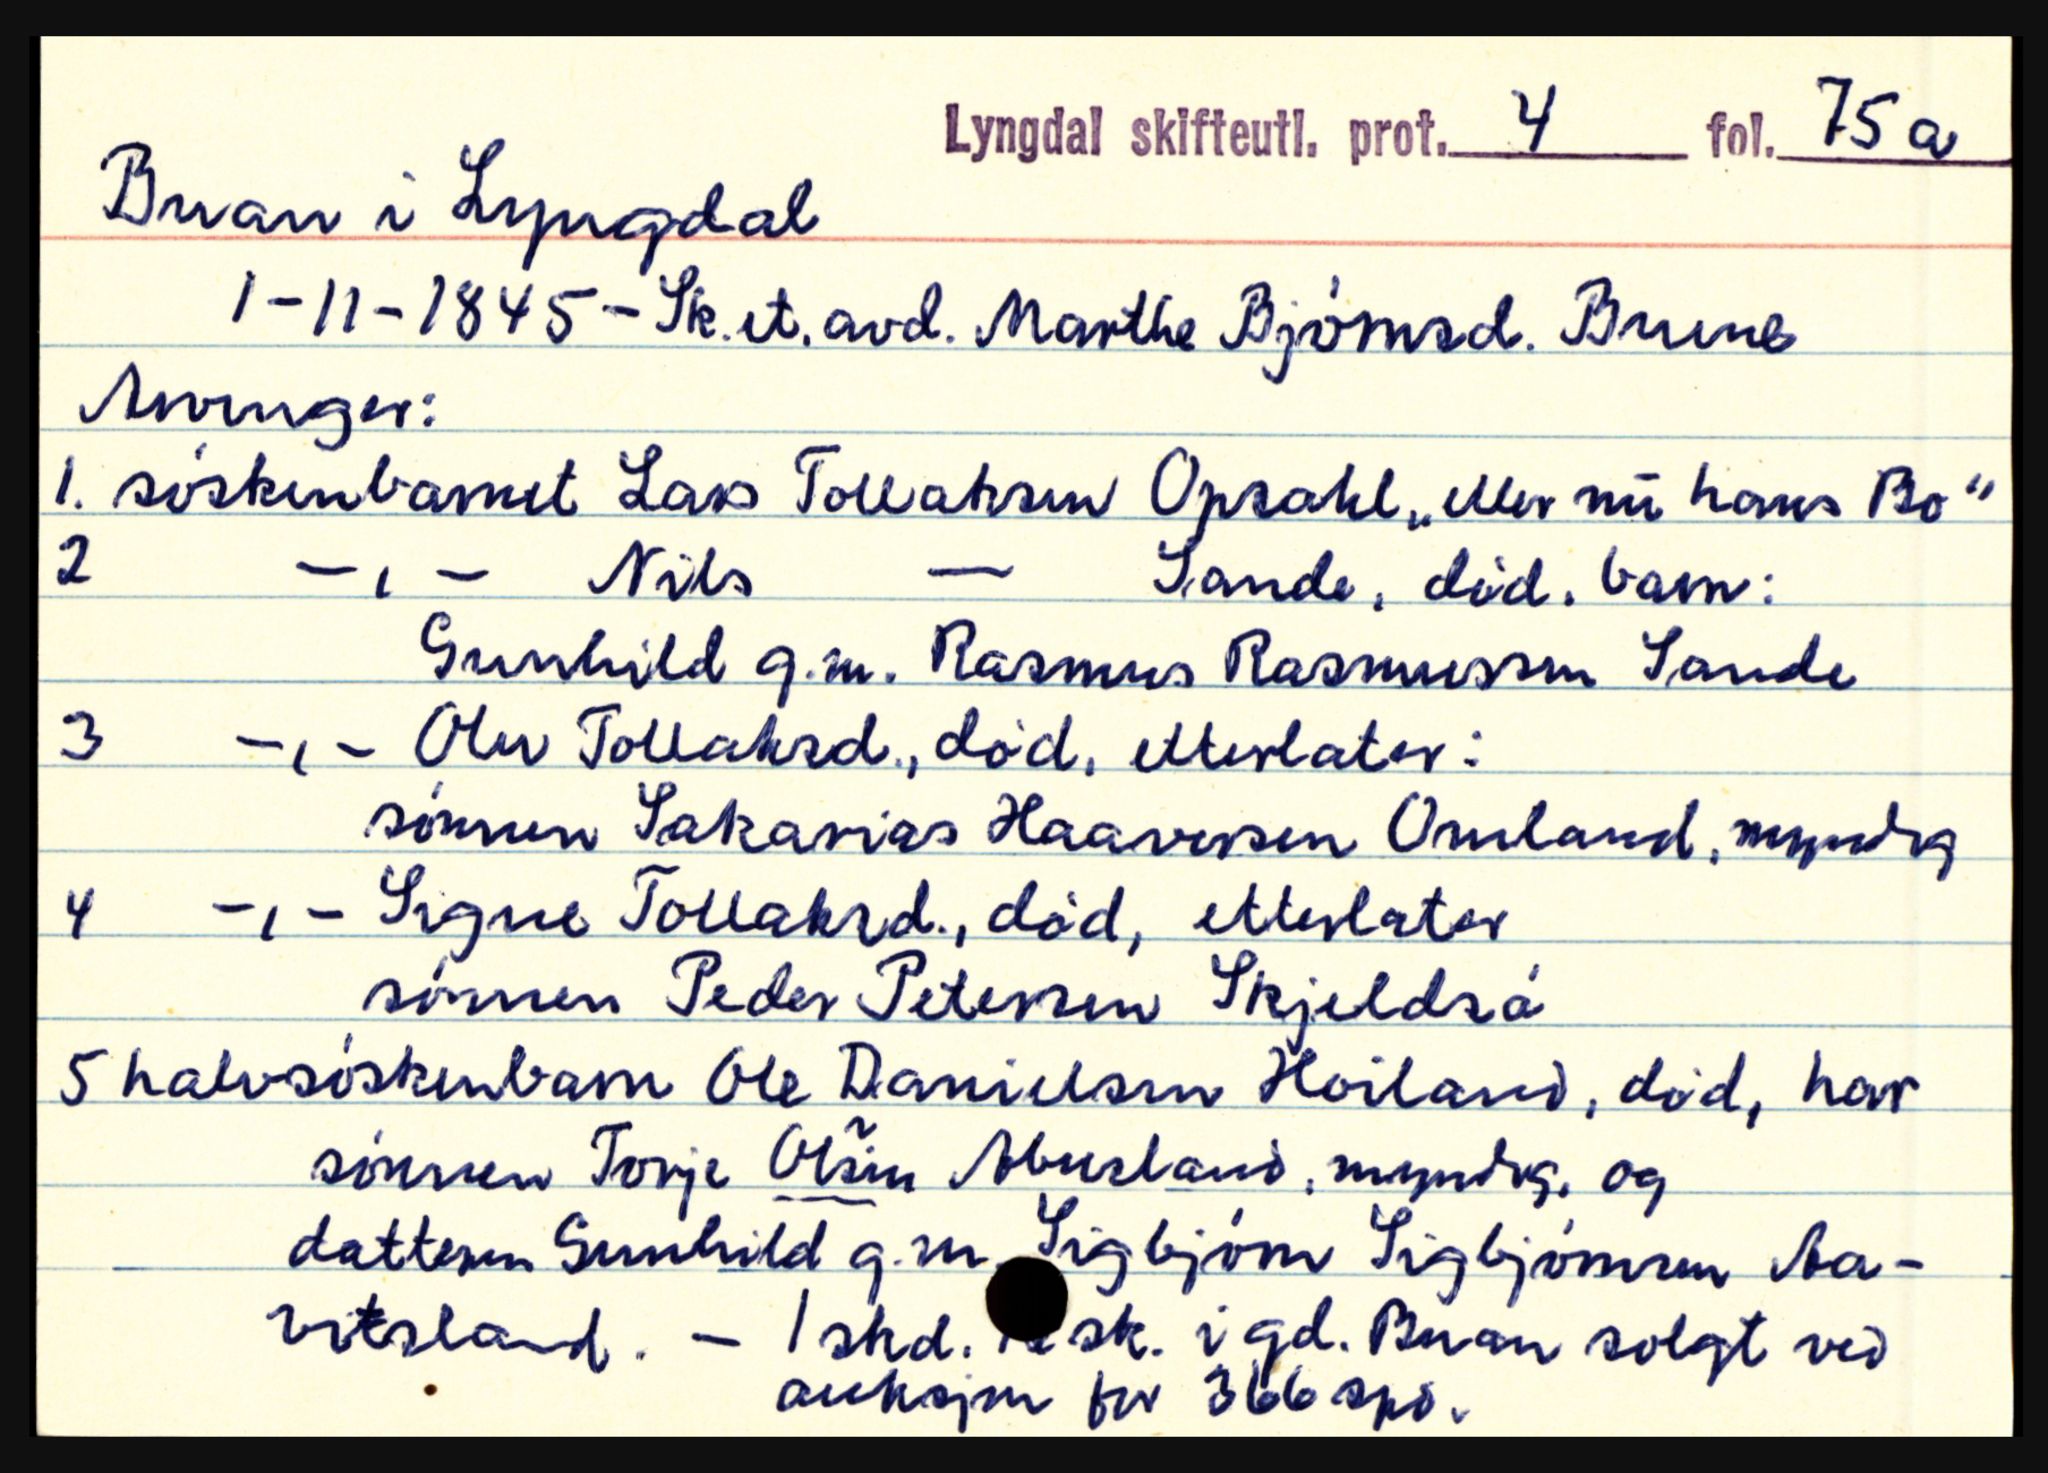 Lyngdal skifteutl. prot. 4 fol. 75 a
Bruan i Lyngdal
1-11-1845 - Sk. et. avd. Marthe Bjórnsd. Brune
Arvinger:
1. sóskenbarnet Lars Tollaksen Opsahl „eller nū hans Bo"
2 -,- Nils — Sande, död. barn:
Gunhild g.m. Rasmus Rasmussen Sande
3 -,- Olu Tollaksd., död, etterlater:
sónnen Sakarias Haaversen Omland, myndig
4 -,- Signe Tollaksd., död, etterlater
sónnen Peder Petersen Skjeldså
5 halvsóskenbarn Ole Danielsen Hoiland, död, har
sónnen Torje Olsen Abusland, myndig, og
datteren Gunhild g.m. Sigbjórn Sigbjórnsen Aa-
vitsland. - 1 skd. sk. i gd. Bruan solgt ved
auksjon for 366 spd.